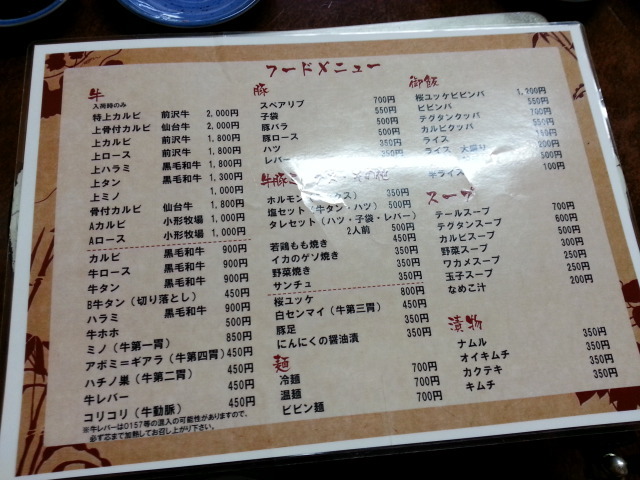 フードメニュー
牛
入荷時のみ
特上カルビ 前沢牛 2,000円
上骨付カルビ 仙台牛 2,000円
上カルビ 前沢牛 1,800円
上ロース 前沢牛 1,800円
上ハラミ 黒毛和牛 1,800円
上タン 1,300円
上ミノ 1,000円
骨付カルビ 仙台牛 1,800円
Aカルビ 小形牧場 1,000円
Aロース 小形牧場 1,000円
カルビ 黒毛和牛 900円
牛ロース 黒毛和牛 900円
牛タン 黒毛和牛 900円
B牛タン(切り落とし) 450円
ハラミ 黒毛和牛 900円
牛ホホ 500円
ミノ(牛第一胃) 850円
アボミ=ギアラ(牛第四胃) 450円
ハチノ巣(牛第二胃) 450円
牛レバー 450円
コリコリ(牛動脈) 450円
※牛レバーはO157等の混入の可能性がありますので、
必ず芯まで加熱してお召し上がり下さい。
豚
スペアリブ 700円
子袋 550円
豚バラ 500円
豚ロース 500円
ハツ 350円
レバー
牛豚 その他
ホルモン 350円
塩セット(牛タン・ハツ) 500円
タレセット(ハツ・子袋・レバー)
2人前 500円
若鶏もも焼き 450円
イカのゲソ焼き 350円
野菜焼き 350円
サンチュ 350円
桜ユッケ 800円
白センマイ(牛第三胃) 450円
豚足 350円
にんにくの醤油漬 350円
麺
冷麺 700円
温麺 700円
ビビン麺 700円
御飯
桜ユッケビビンバ 1,200円
ビビンバ 550円
テグタンクッパ 700円
カルビクッパ 550円
ライス
ライス 大盛り 200円
500円
半ライス 100円
スープ
テールスープ 700円
テクタンスープ 600円
カルビスープ 500円
野菜スープ 300円
ワカメスープ 250円
玉子スープ 250円
なめこ汁 200円
漬物
ナムル 350円
オイキムチ 350円
カクテキ 350円
キムチ 350円